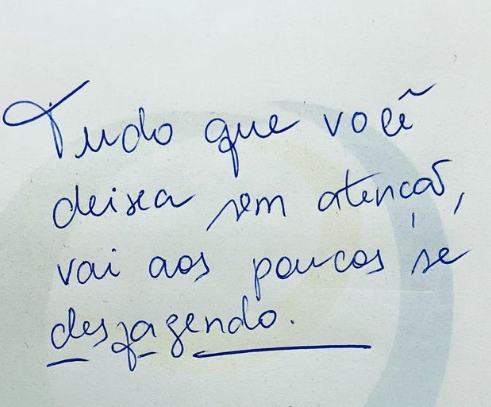 Tudo que você
deixa sem atenção,
vai aos poucos se
desfazendo.